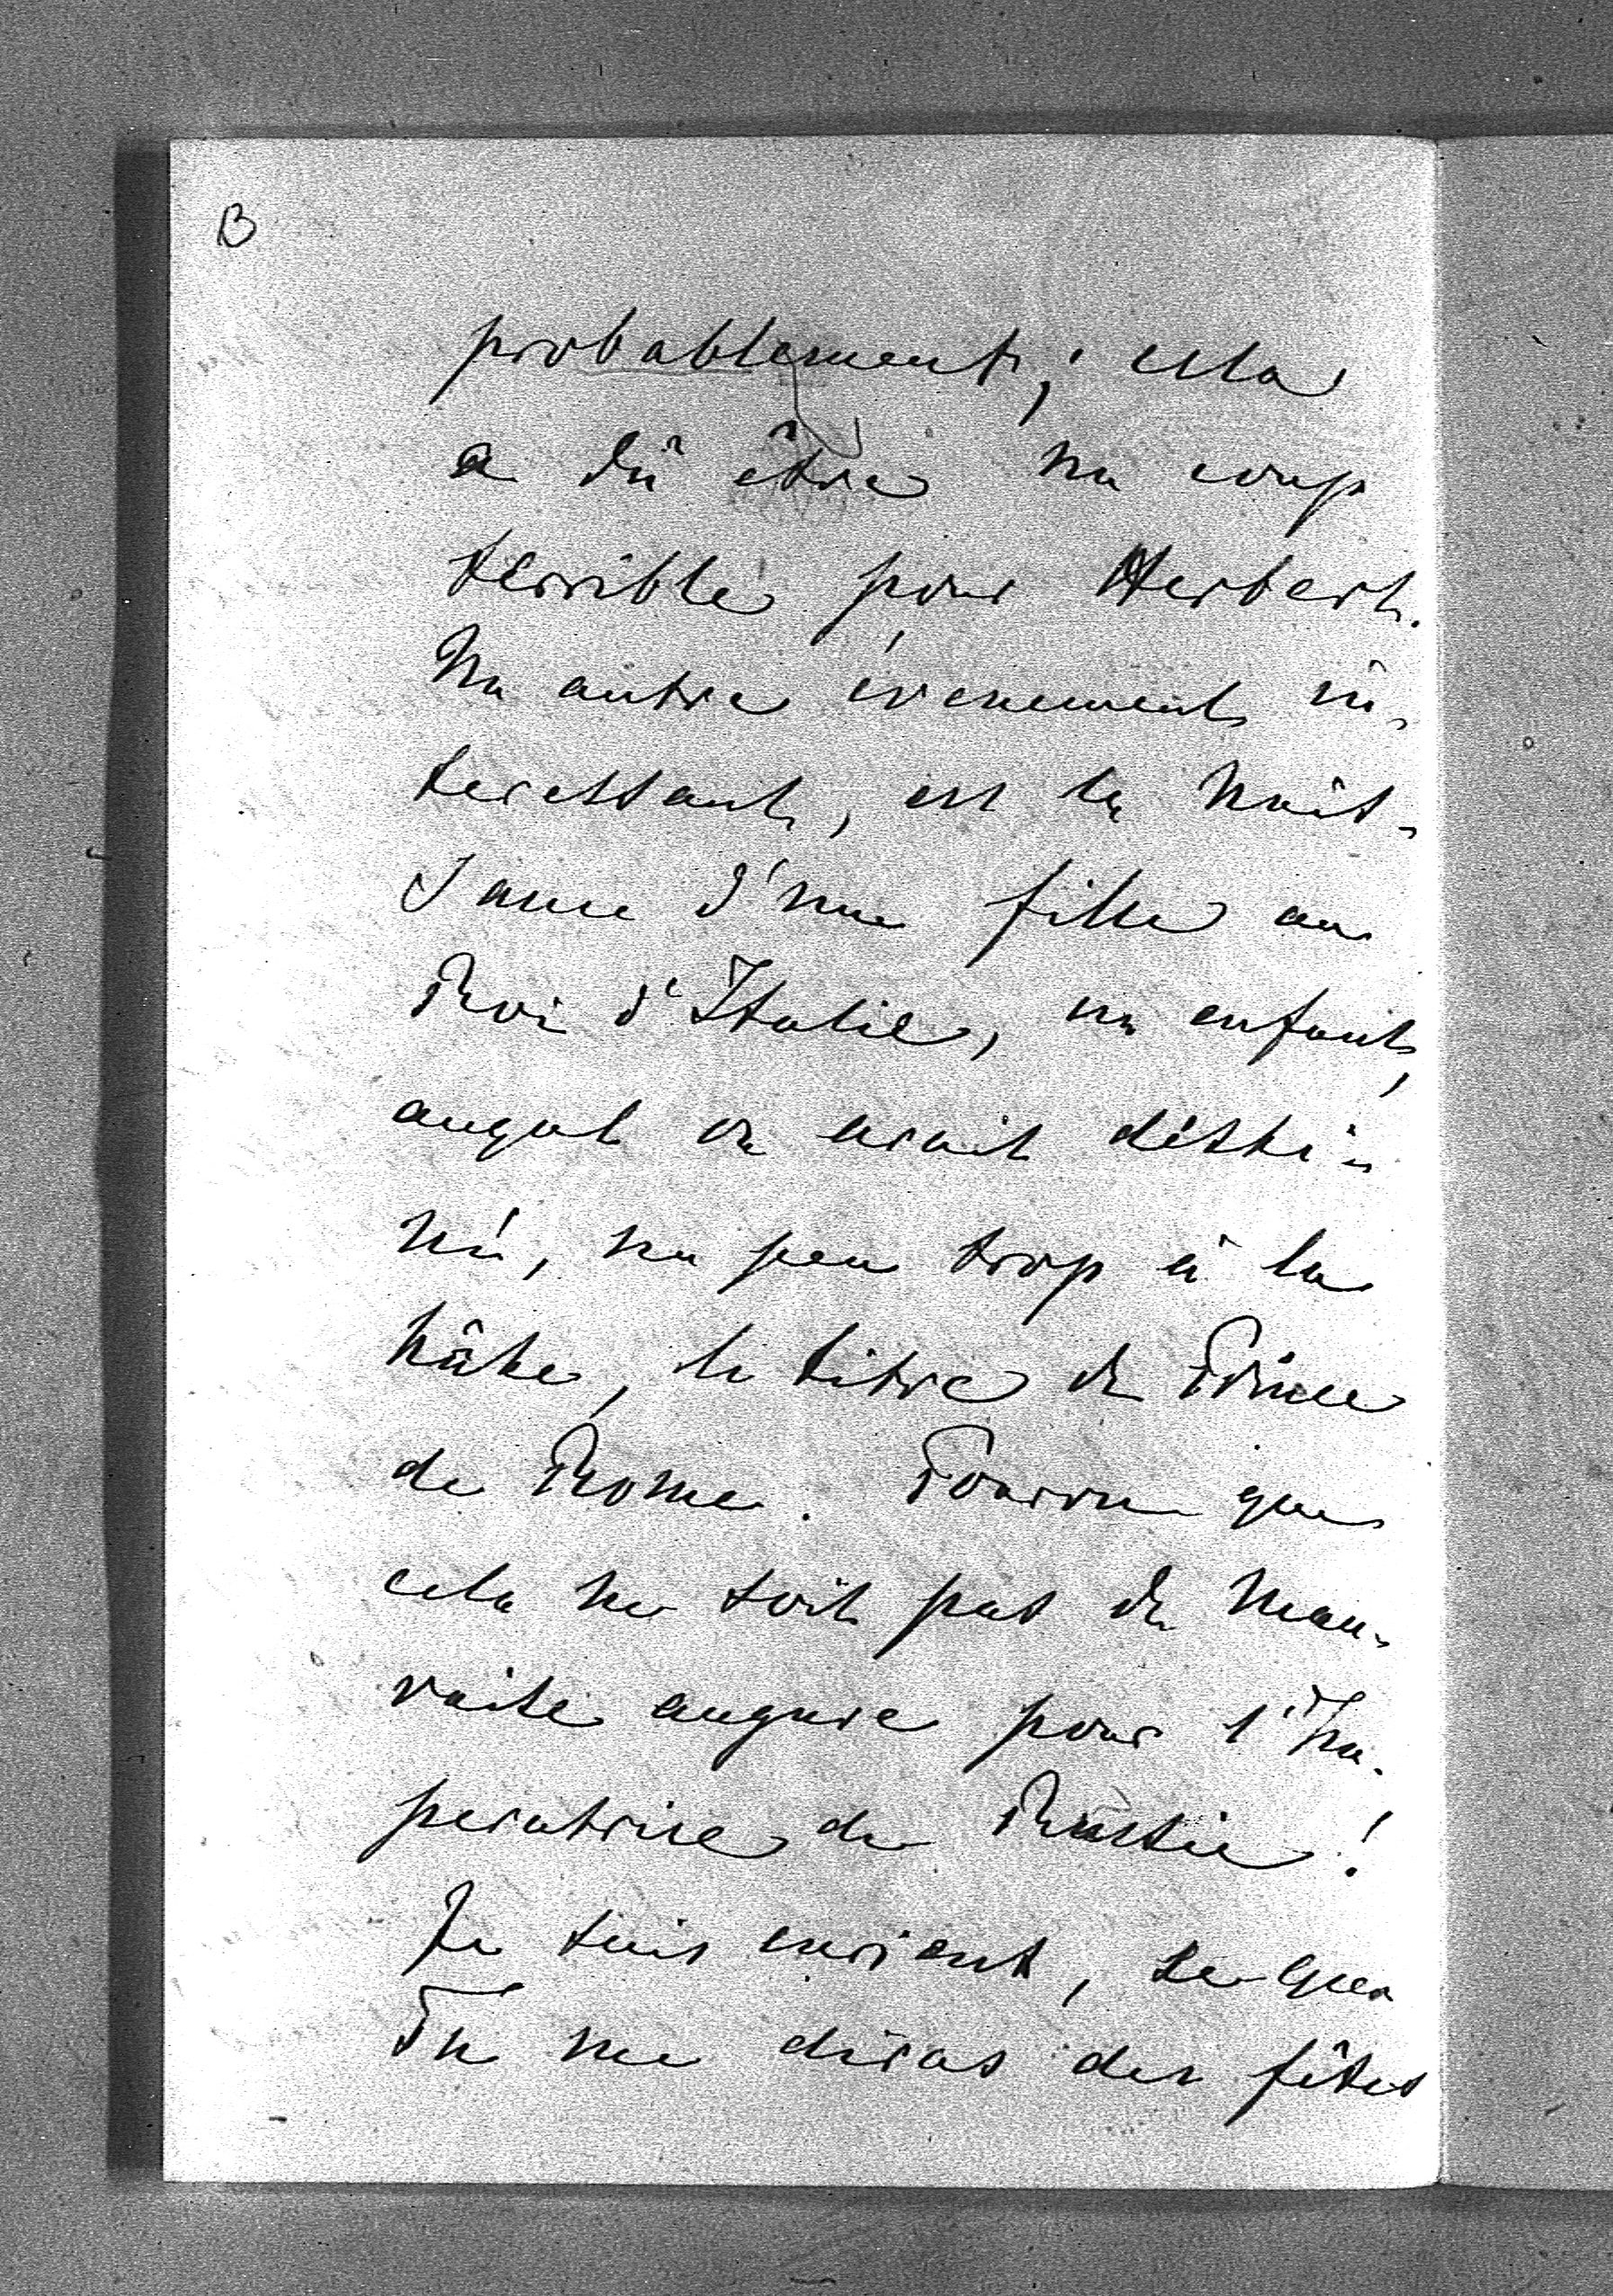 B
probablement; cela
a dû être un coup
terrible pour Herbert.
Un autre évenement in-
teressant, est la nais-
sance d'une fille au
Roi d'Italie, un enfant,
auquel on avait desti-
né, un peu trop à la
hâte, le titre de Prince
de Rome. Pourvu que
cela ne soit pas de mau-
vaise augure pour l'Im-
peratrice de Russie!
Je suis curieux, ce que
Tu me diras des fêtes